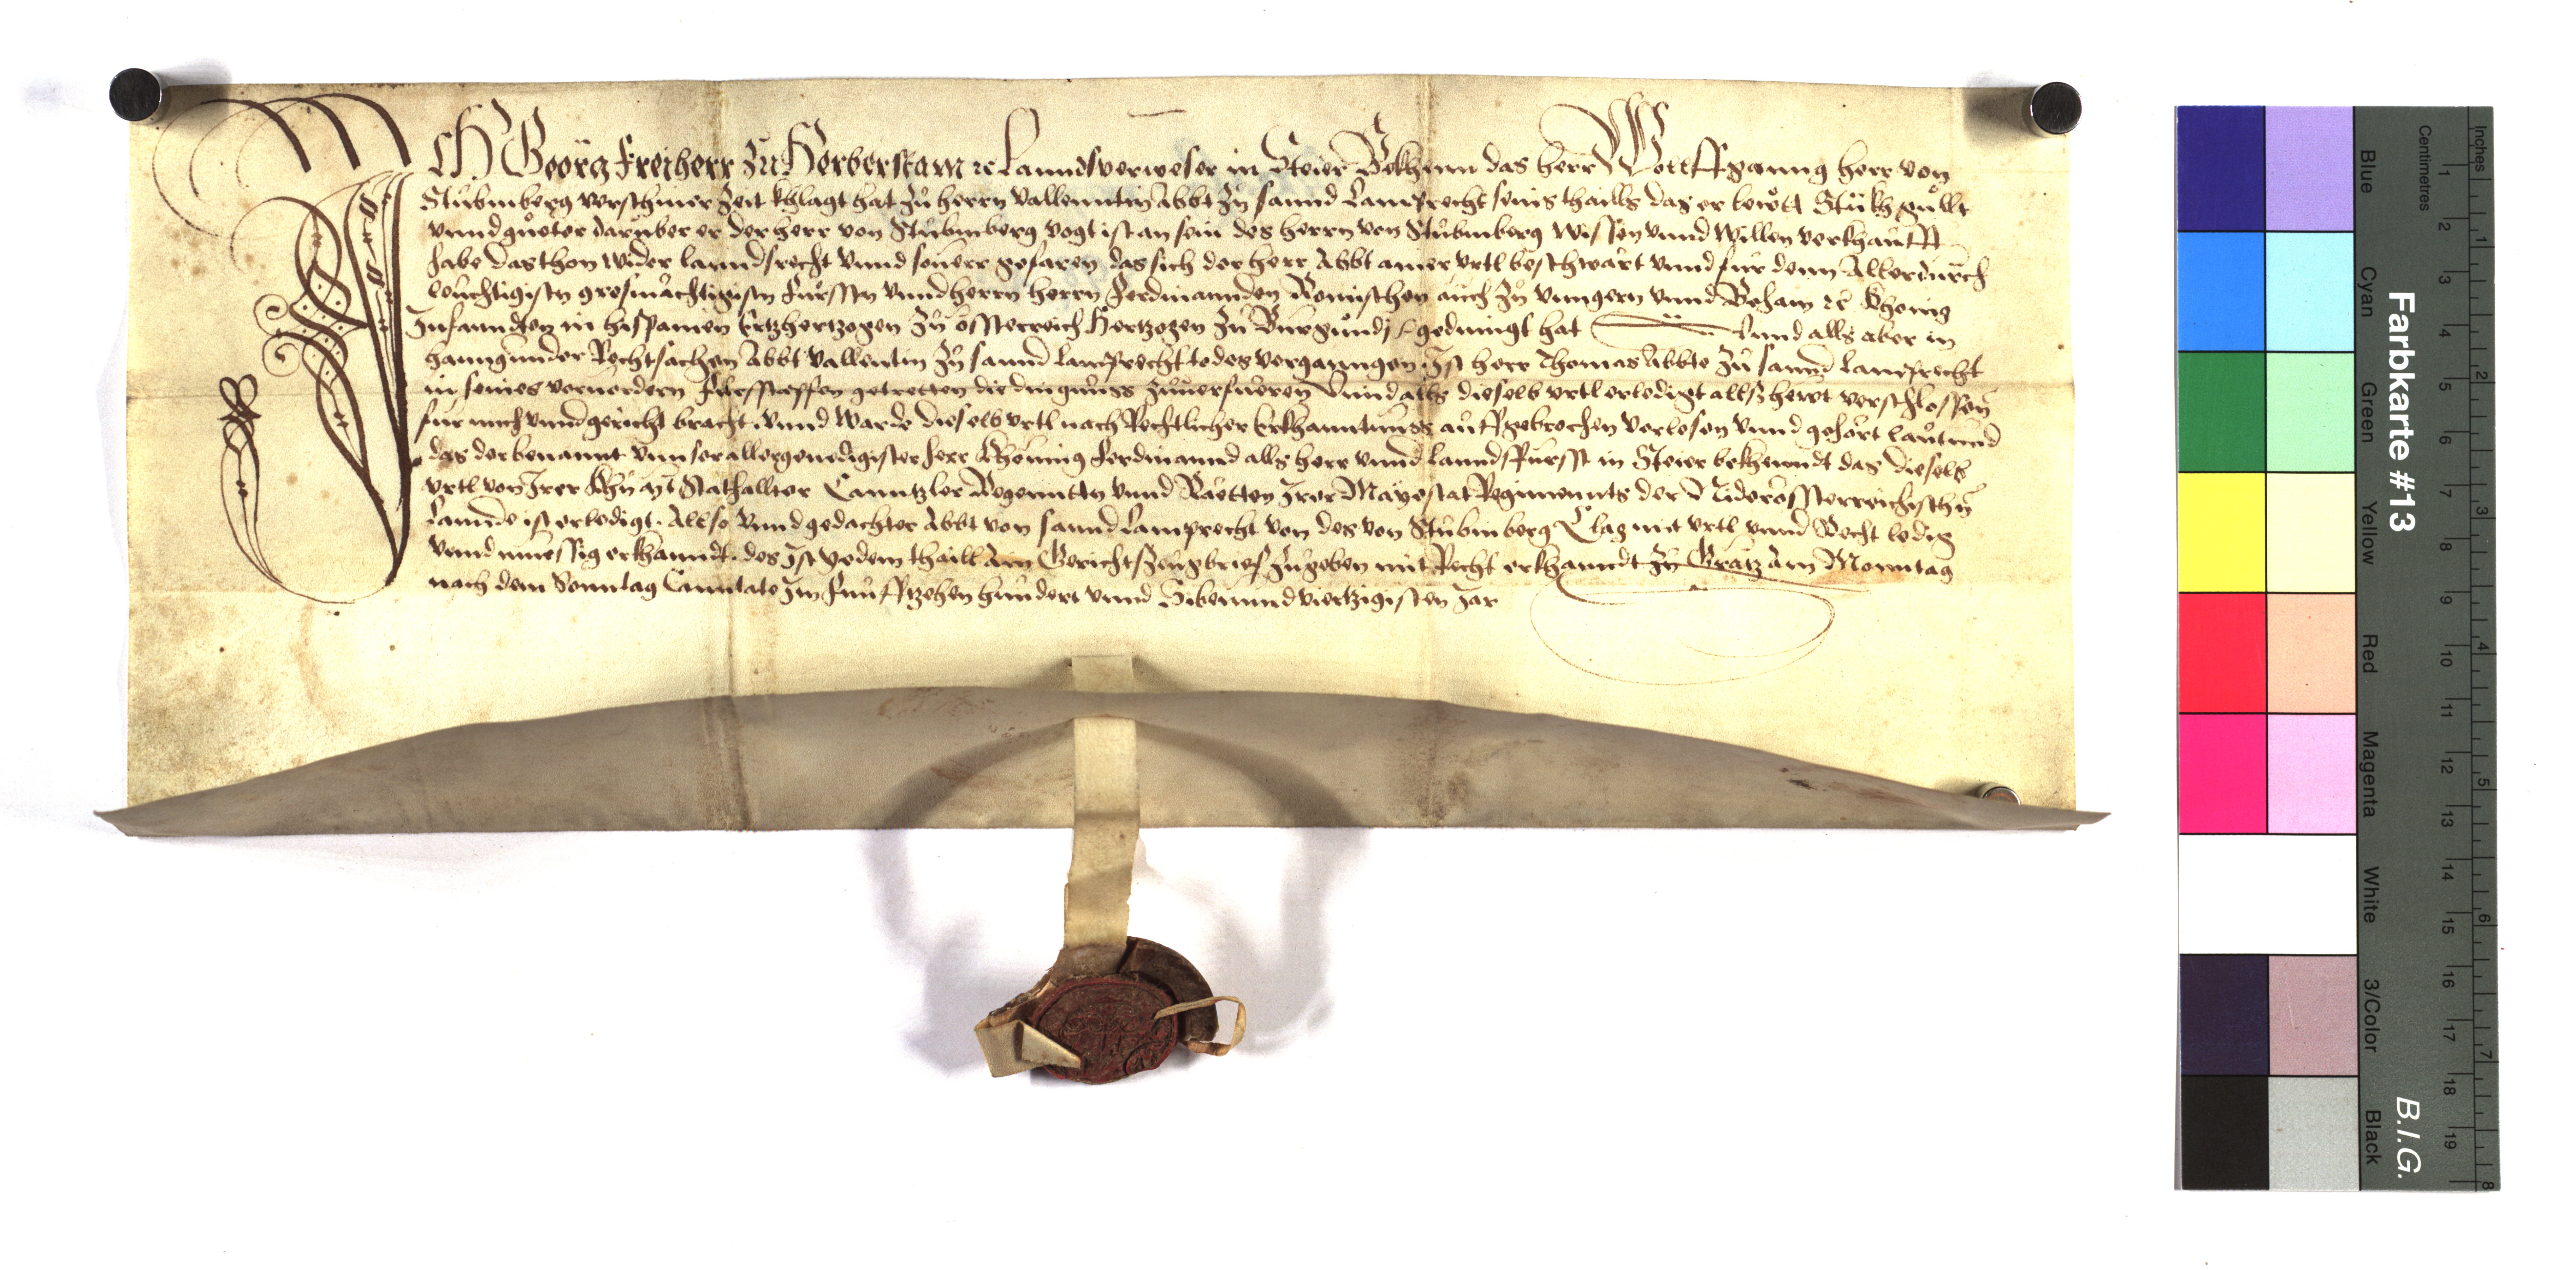 ICH Geörg freiherr zu Herberstain ꝛc Lanndsverweser in Steier Bekhenn das herr Wolffganng herr von
Stubmberg verschiner Zeit khlagt hat Zu herrn Vallenntin Abbt Zu sannd Lamprecht seins thaills das er Stukh gullt
vnnd gueter darüber er der herr von Stubmberg vogt ist an sein des herrn von Stubmberg wissen vnnd willen verkhaufft
habe das thon wider lanndsrecht vnnd seuerr gefaren das sich der herr Abbt ainer vrtl beschwärt vnnd fur denn Allerdurch
leuchtigistn grosmächtigistn Fürsstn vnnd herrn herrn Ferdinannden Romischen auch Zu vnngern vnnd Behaim ꝛc Khonig
Infannten in hispanien Ertzhertzogen Zu össterreich Hertzogen Zu Burgundj ꝛc gedingt hat Vnnd alls aber in
hanngunder Rechtsachen Abbt Vallentin Zu sannd lamprecht todes verganngen Ist herr Thomas Abbte Zu sannd lamprecht
in seines voruordern Fuessstapffen getretten die dingnuss Zuuerfueren Vnnd alls dieselb vrtl erledigt allss hewt verschlossen
fur mich vnnd gericht bracht. vnnd warde dieselb vrtl nach Rechtlicher Erkhanntnuss auffgebrochen verlesen vnnd gehört lautund
das der benannt vnnser allergenedigister herr Khöning Ferdinannd alls herr vnnd lanndsfürsst in Steier bekhenndt das dieselb
vrtl von Irer Khü. Mt. Stathallter Canntzler Regenntn vnnd Räetten Irer Mayestat Regimennts der Niderössterreichischn
Lannde ist erledigt. Allso vnnd gedachter Abbt von sannd Lamprecht von des von Stubmberg Clag mit vrtl vnnd Recht ledig
vnnd muessig erkhanndt. des Ist yedem thaill ain Gerichtszeugbrief Zugeben mit Recht erkhanndt Zu Grätz am Monntag
nach dem Sonntag Canntate Im funfftzehen hundert vnnd Sibenundviertzigisten Jar
Farbkarte #13
B.I.G.
Inches
Centimetres
1 2 3 4 5 6 7 8
1 2 3 4 5 6 7 8 9 10 11 12 13 14 15 16 17 18 19
Blue
Cyan
Green
Yellow
Red
Magenta
White
3/Color
Black